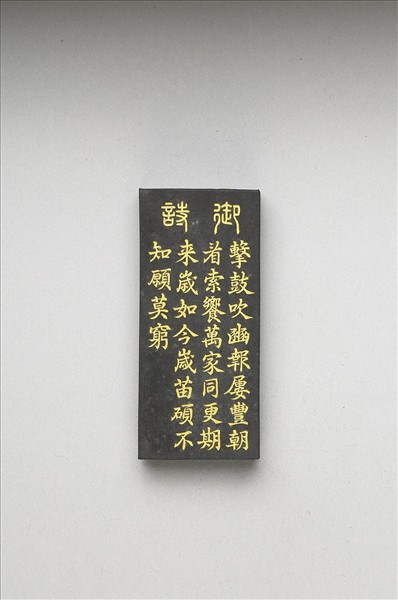 御詩
擊鼓吹豳報屢豐朝
看索饗萬家同更期
来歲如今歲苗碩不
知願莫窮